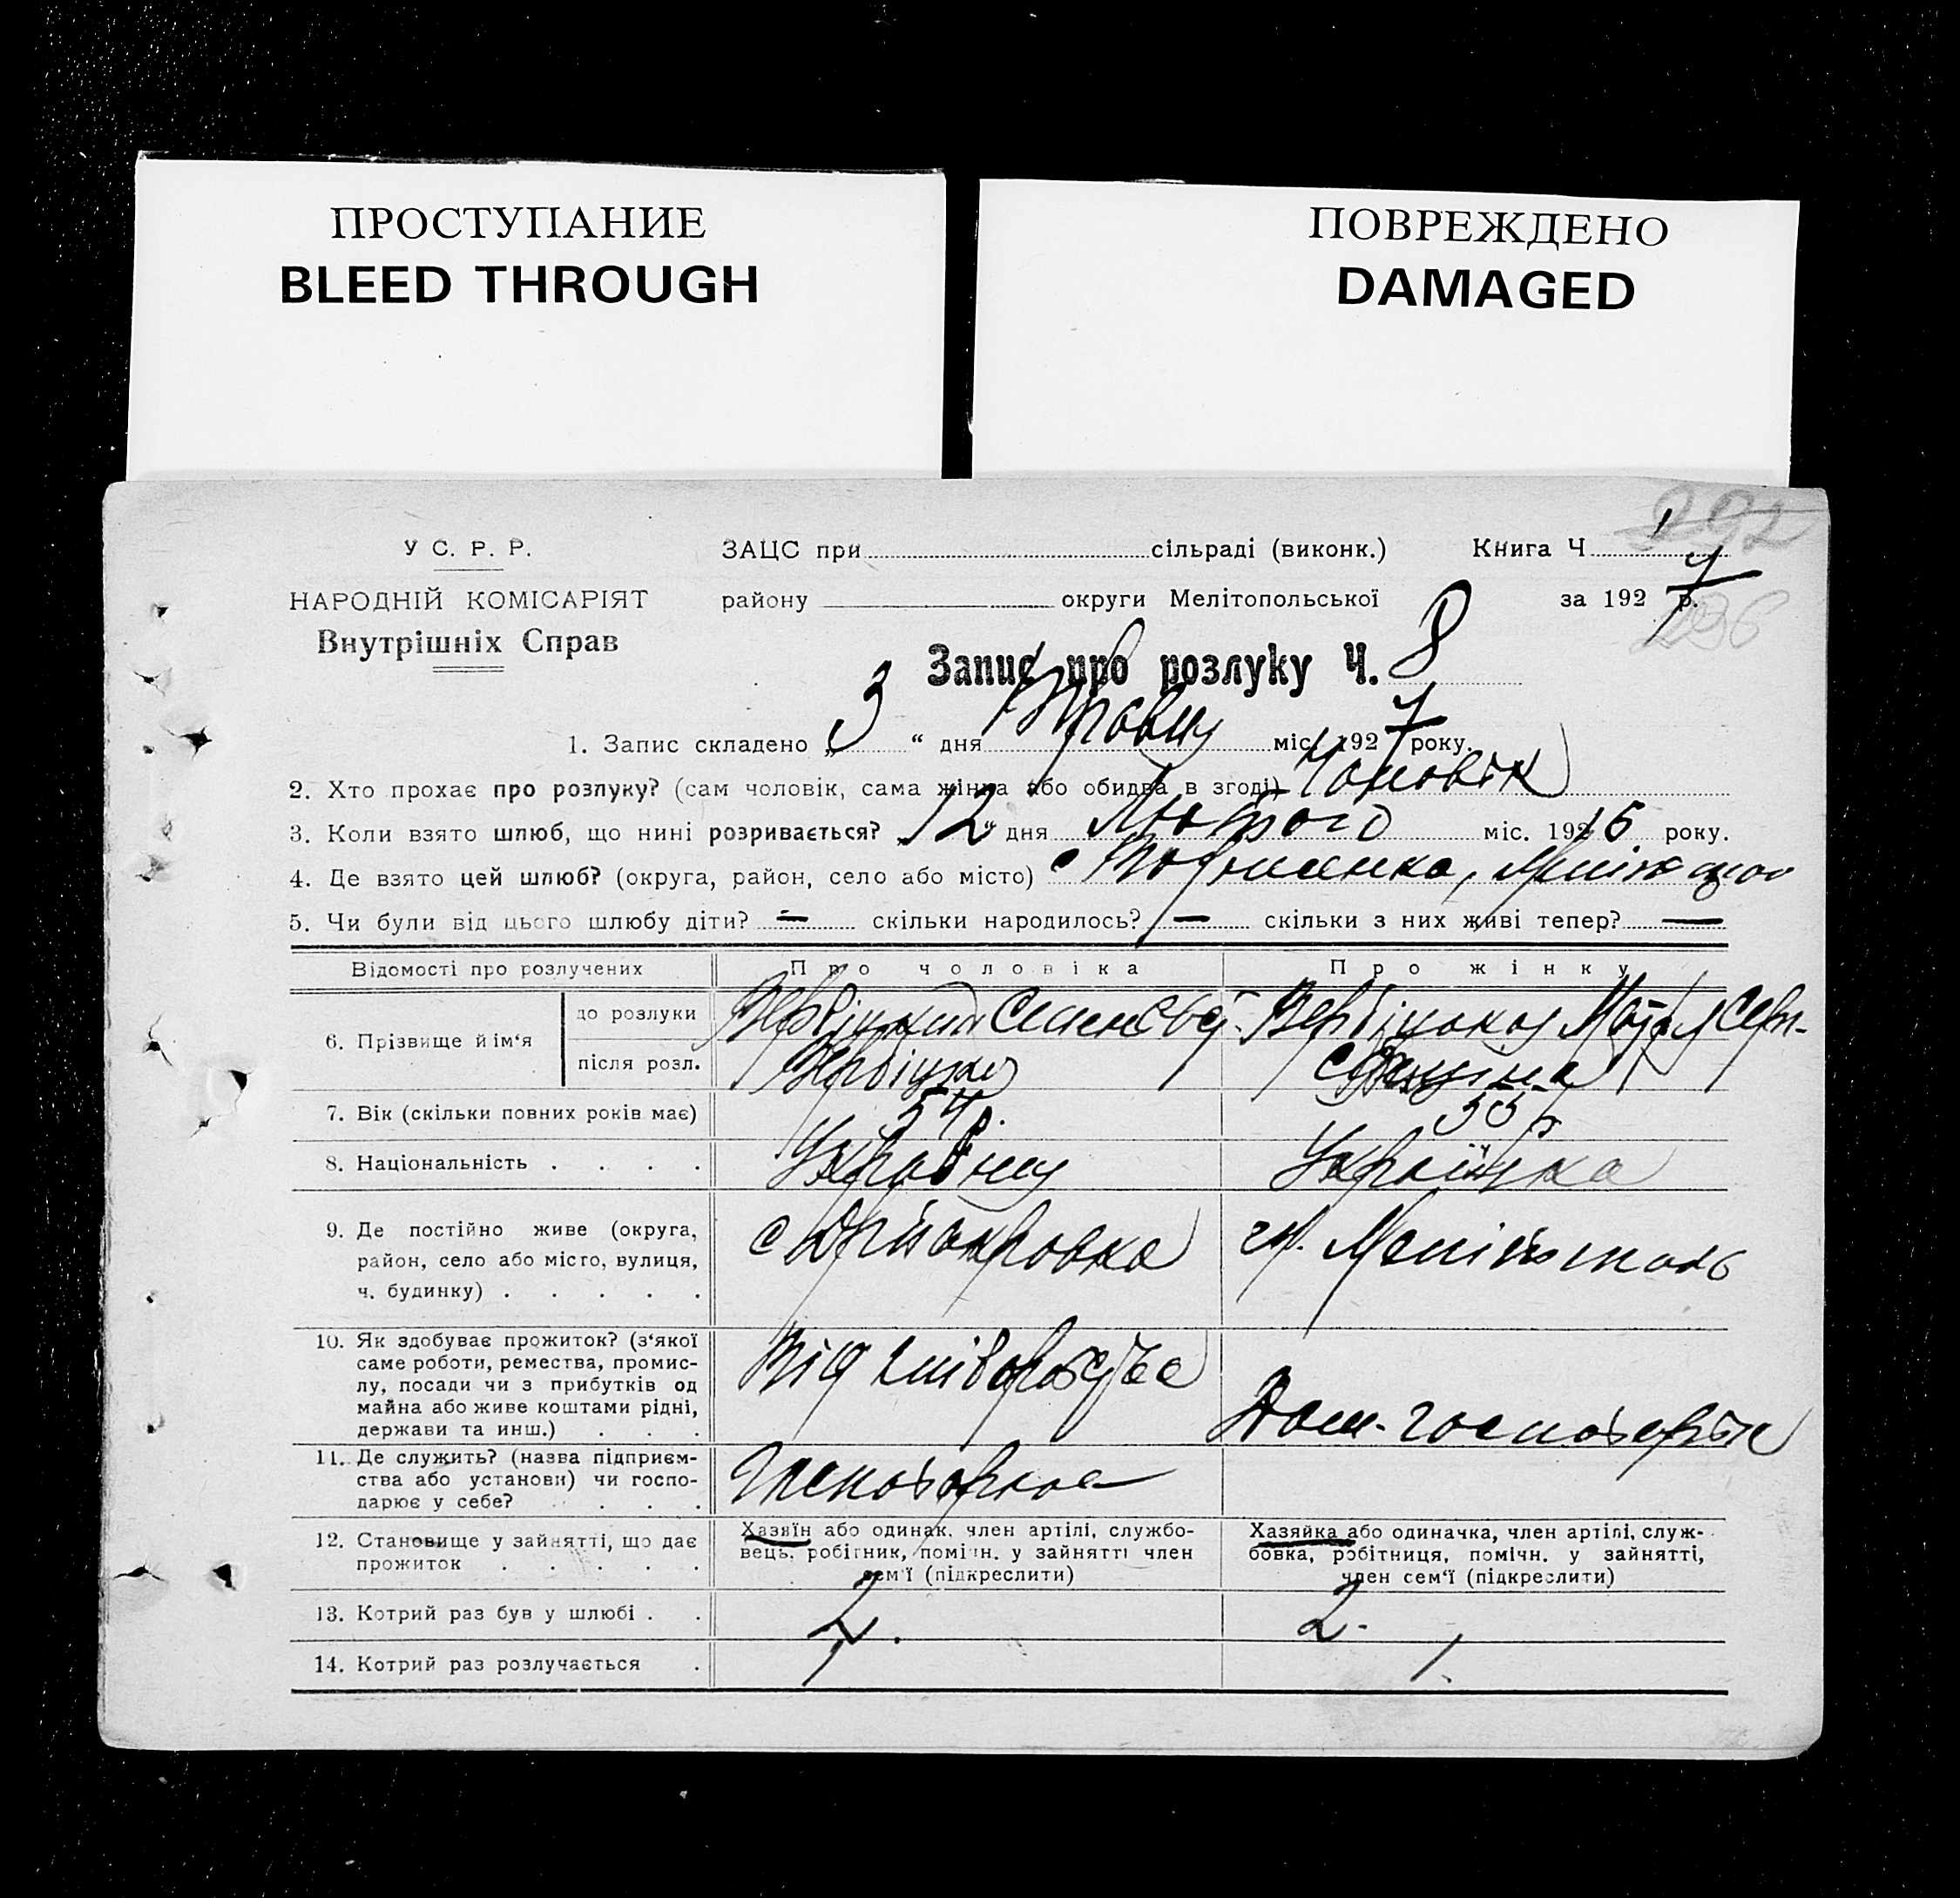 ПРОСТУПАНИЕ
BLEED THROUGH
ПОВРЕЖДЕНО
DAMAGED
292
У С. Р. Р. ЗАЦС при сільраді (виконк.) Книга Ч 1
НАРОДНІЙ КОМІСАРІЯТ району округи Мелітопольської за 1927 р.
296
Внутрішніх Справ
Запис про розлуку Ч. 8
1. Запис складено „3“ дня Травня міс. 1927 року.
2. Хто прохає про розлуку? (сам чоловік, сама жінка або обидва в згоді) Чоловік
3. Коли взято шлюб, що нині розривається? „12“ дня Лютого міс. 1926 року.
4. Де взято цей шлюб? (округа, район, село або місто) с
5. Чи були від цього шлюбу діти? — скільки народилось? — скільки з них живі тепер? —
Відомості про розлучених Про чоловіка Про жінку
6. Прізвище й ім‘я до розлуки
після розл.
7. Вік (скільки повних років має) 54 р. 55 р
8. Національність . . . . Українка
9. Де постійно живе (округа, с
район, село або місто, вулиця, м. Мелітополь
ч. будинку) . . . . .
10. Як здобуває прожиток? (з‘якої
саме роботи, ремества, промис- Від хліборобства
лу, посади чи з прибутків од
майна або живе коштами рідні,
держави та инш.) . . . Дом.
11. Де служить? (назва підприєм-
ства або установи) чи госпо-
дарює у себе? . . .
12. Становище у зайнятті, що дає Хазяїн або одинак, член артілі, службо- Хазяйка або одиначка, член артілі, служ-
прожиток . . . . . вець, робітник, помічн. у зайнятті член бовка, робітниця, помічн. у зайнятті,
сем‘ї (підкреслити) член сем‘ї (підкреслити)
13. Котрий раз був у шлюбі . . 2. 2.
14. Котрий раз розлучається . 1 1.